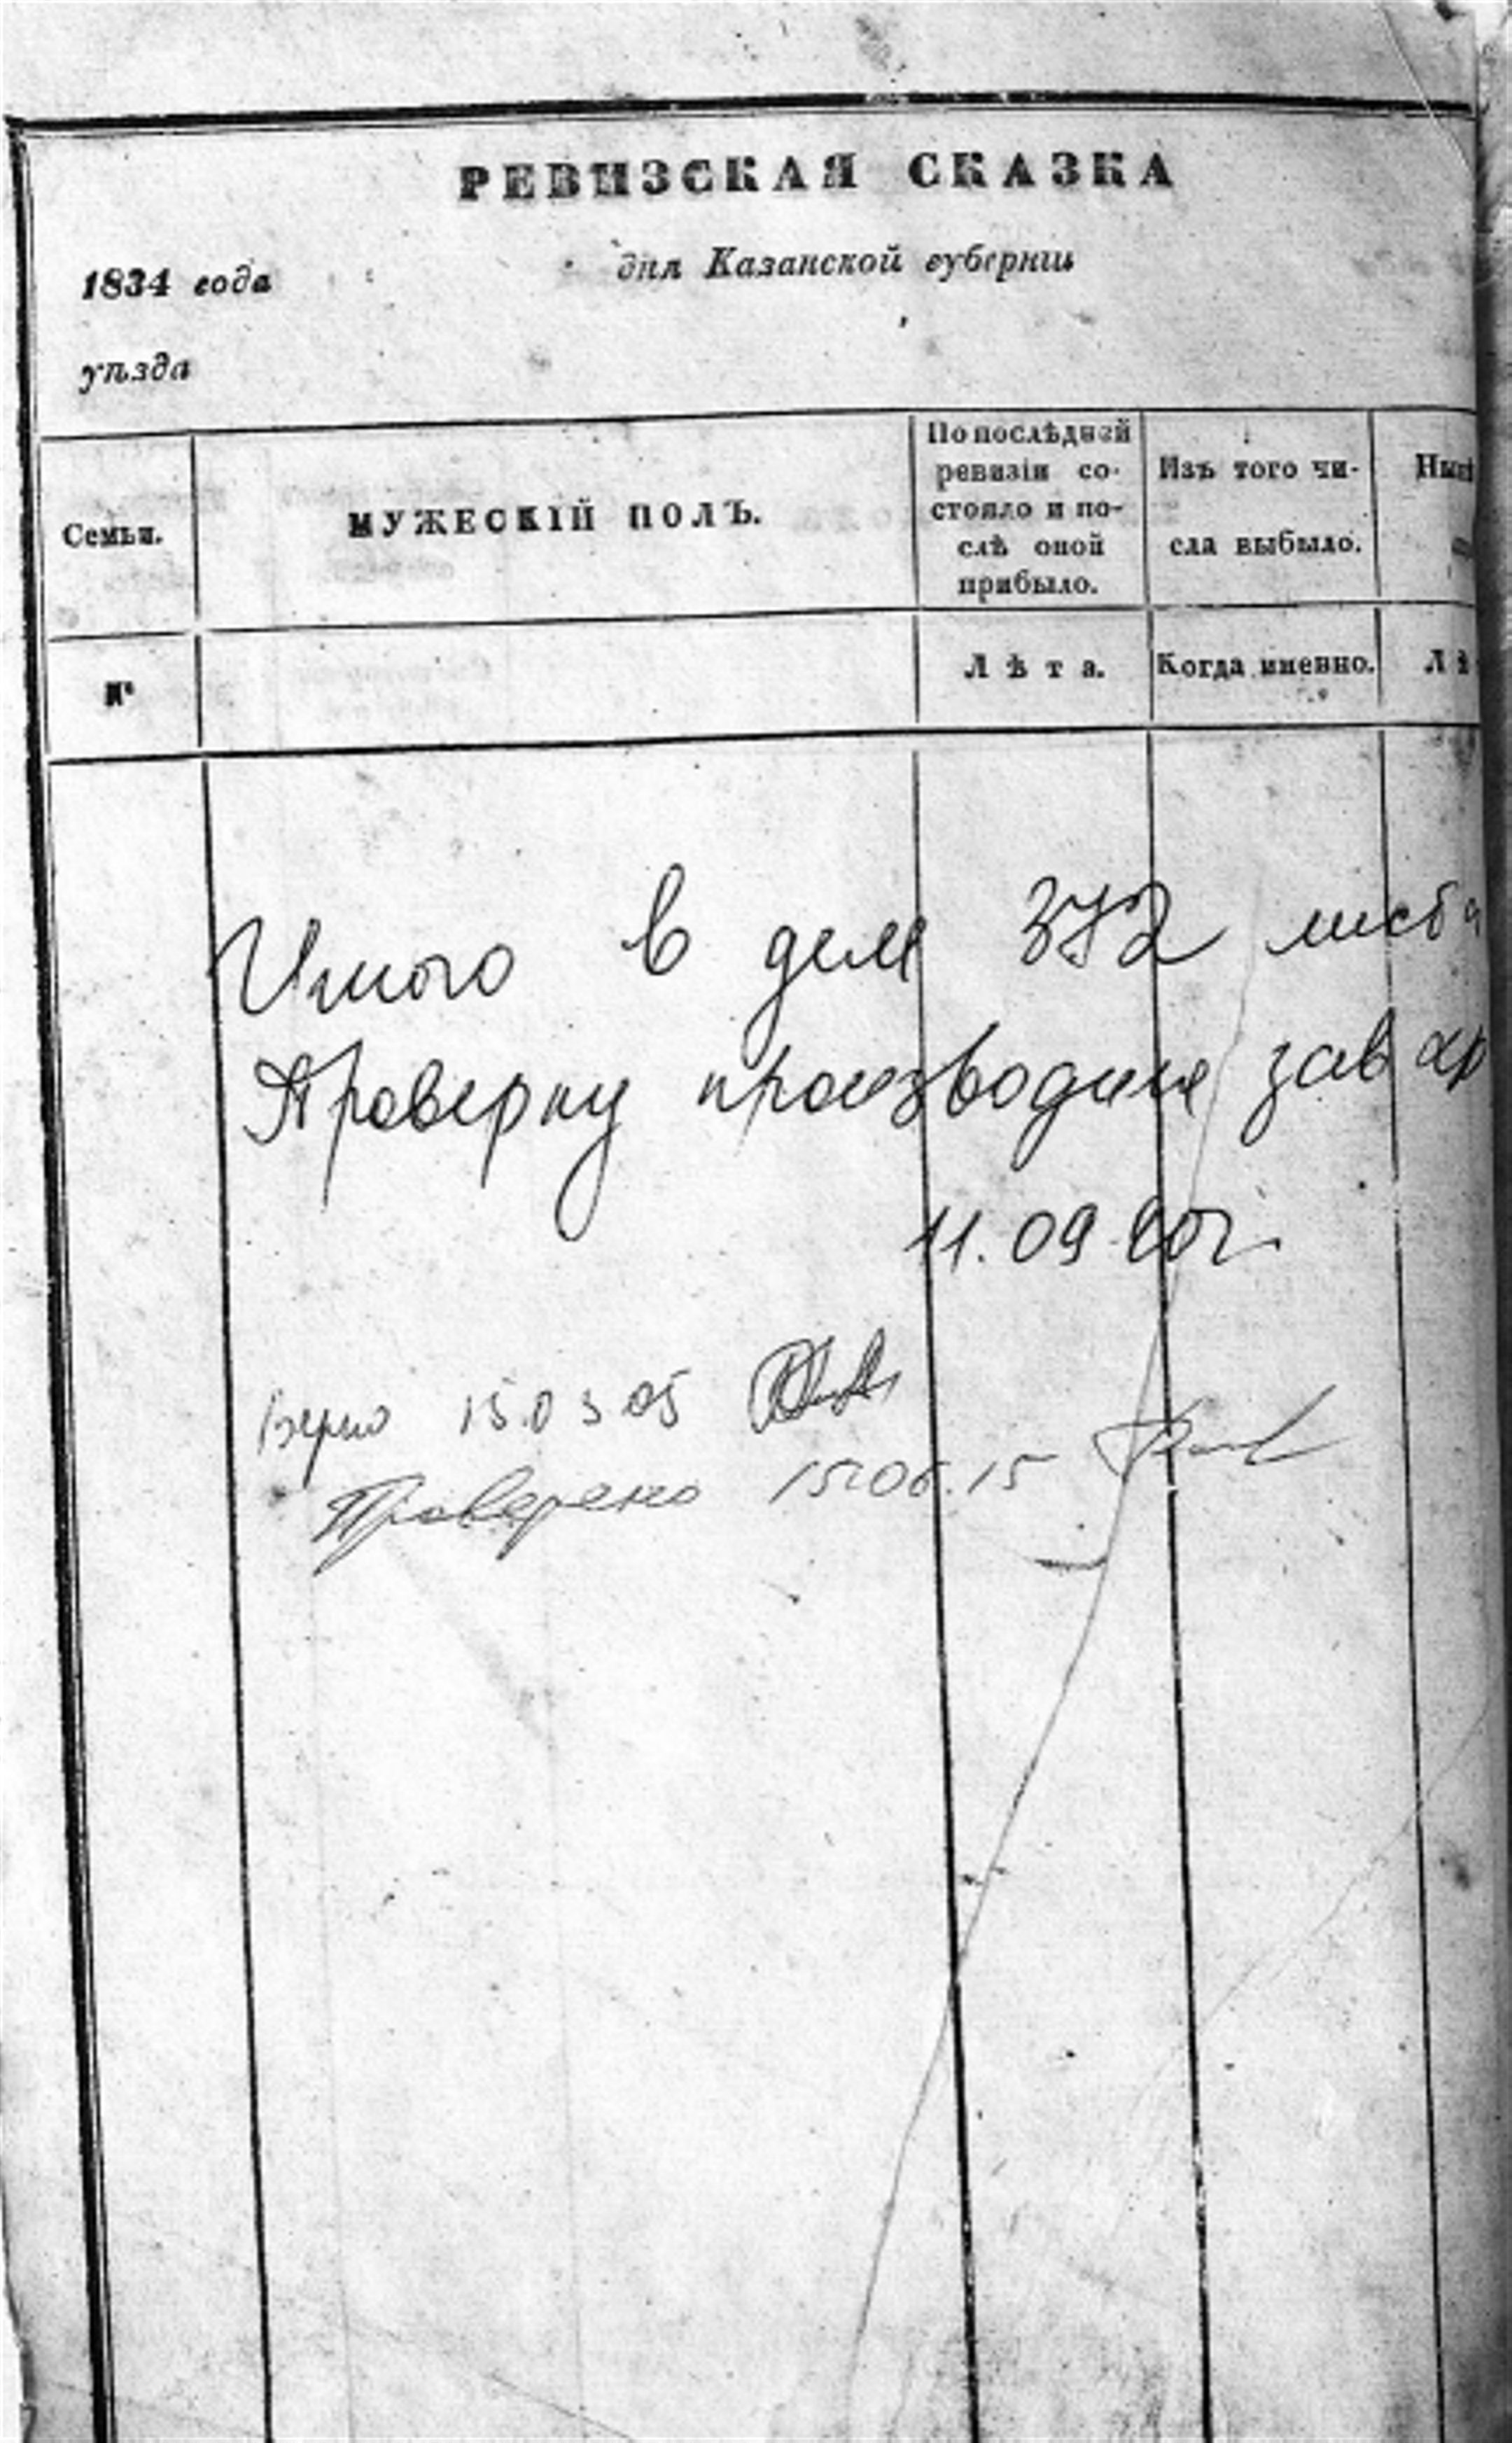 РЕВИЗСКАЯ СКАЗКА
1834 года дня Казанской губерніи
уѣзда
Семьи.
МУЖЕСКІЙ ПОЛЪ.
По послѣдней
ревизіи со-
стояло и по-
слѣ оной
прибыло.
Изъ того чи-
сла выбыло.
№
Лѣта.
Когда именно.
Итого в деле 372 листа
Проверку производила зав
11.09
Верно 15.03.05
Проверено 15.06.15